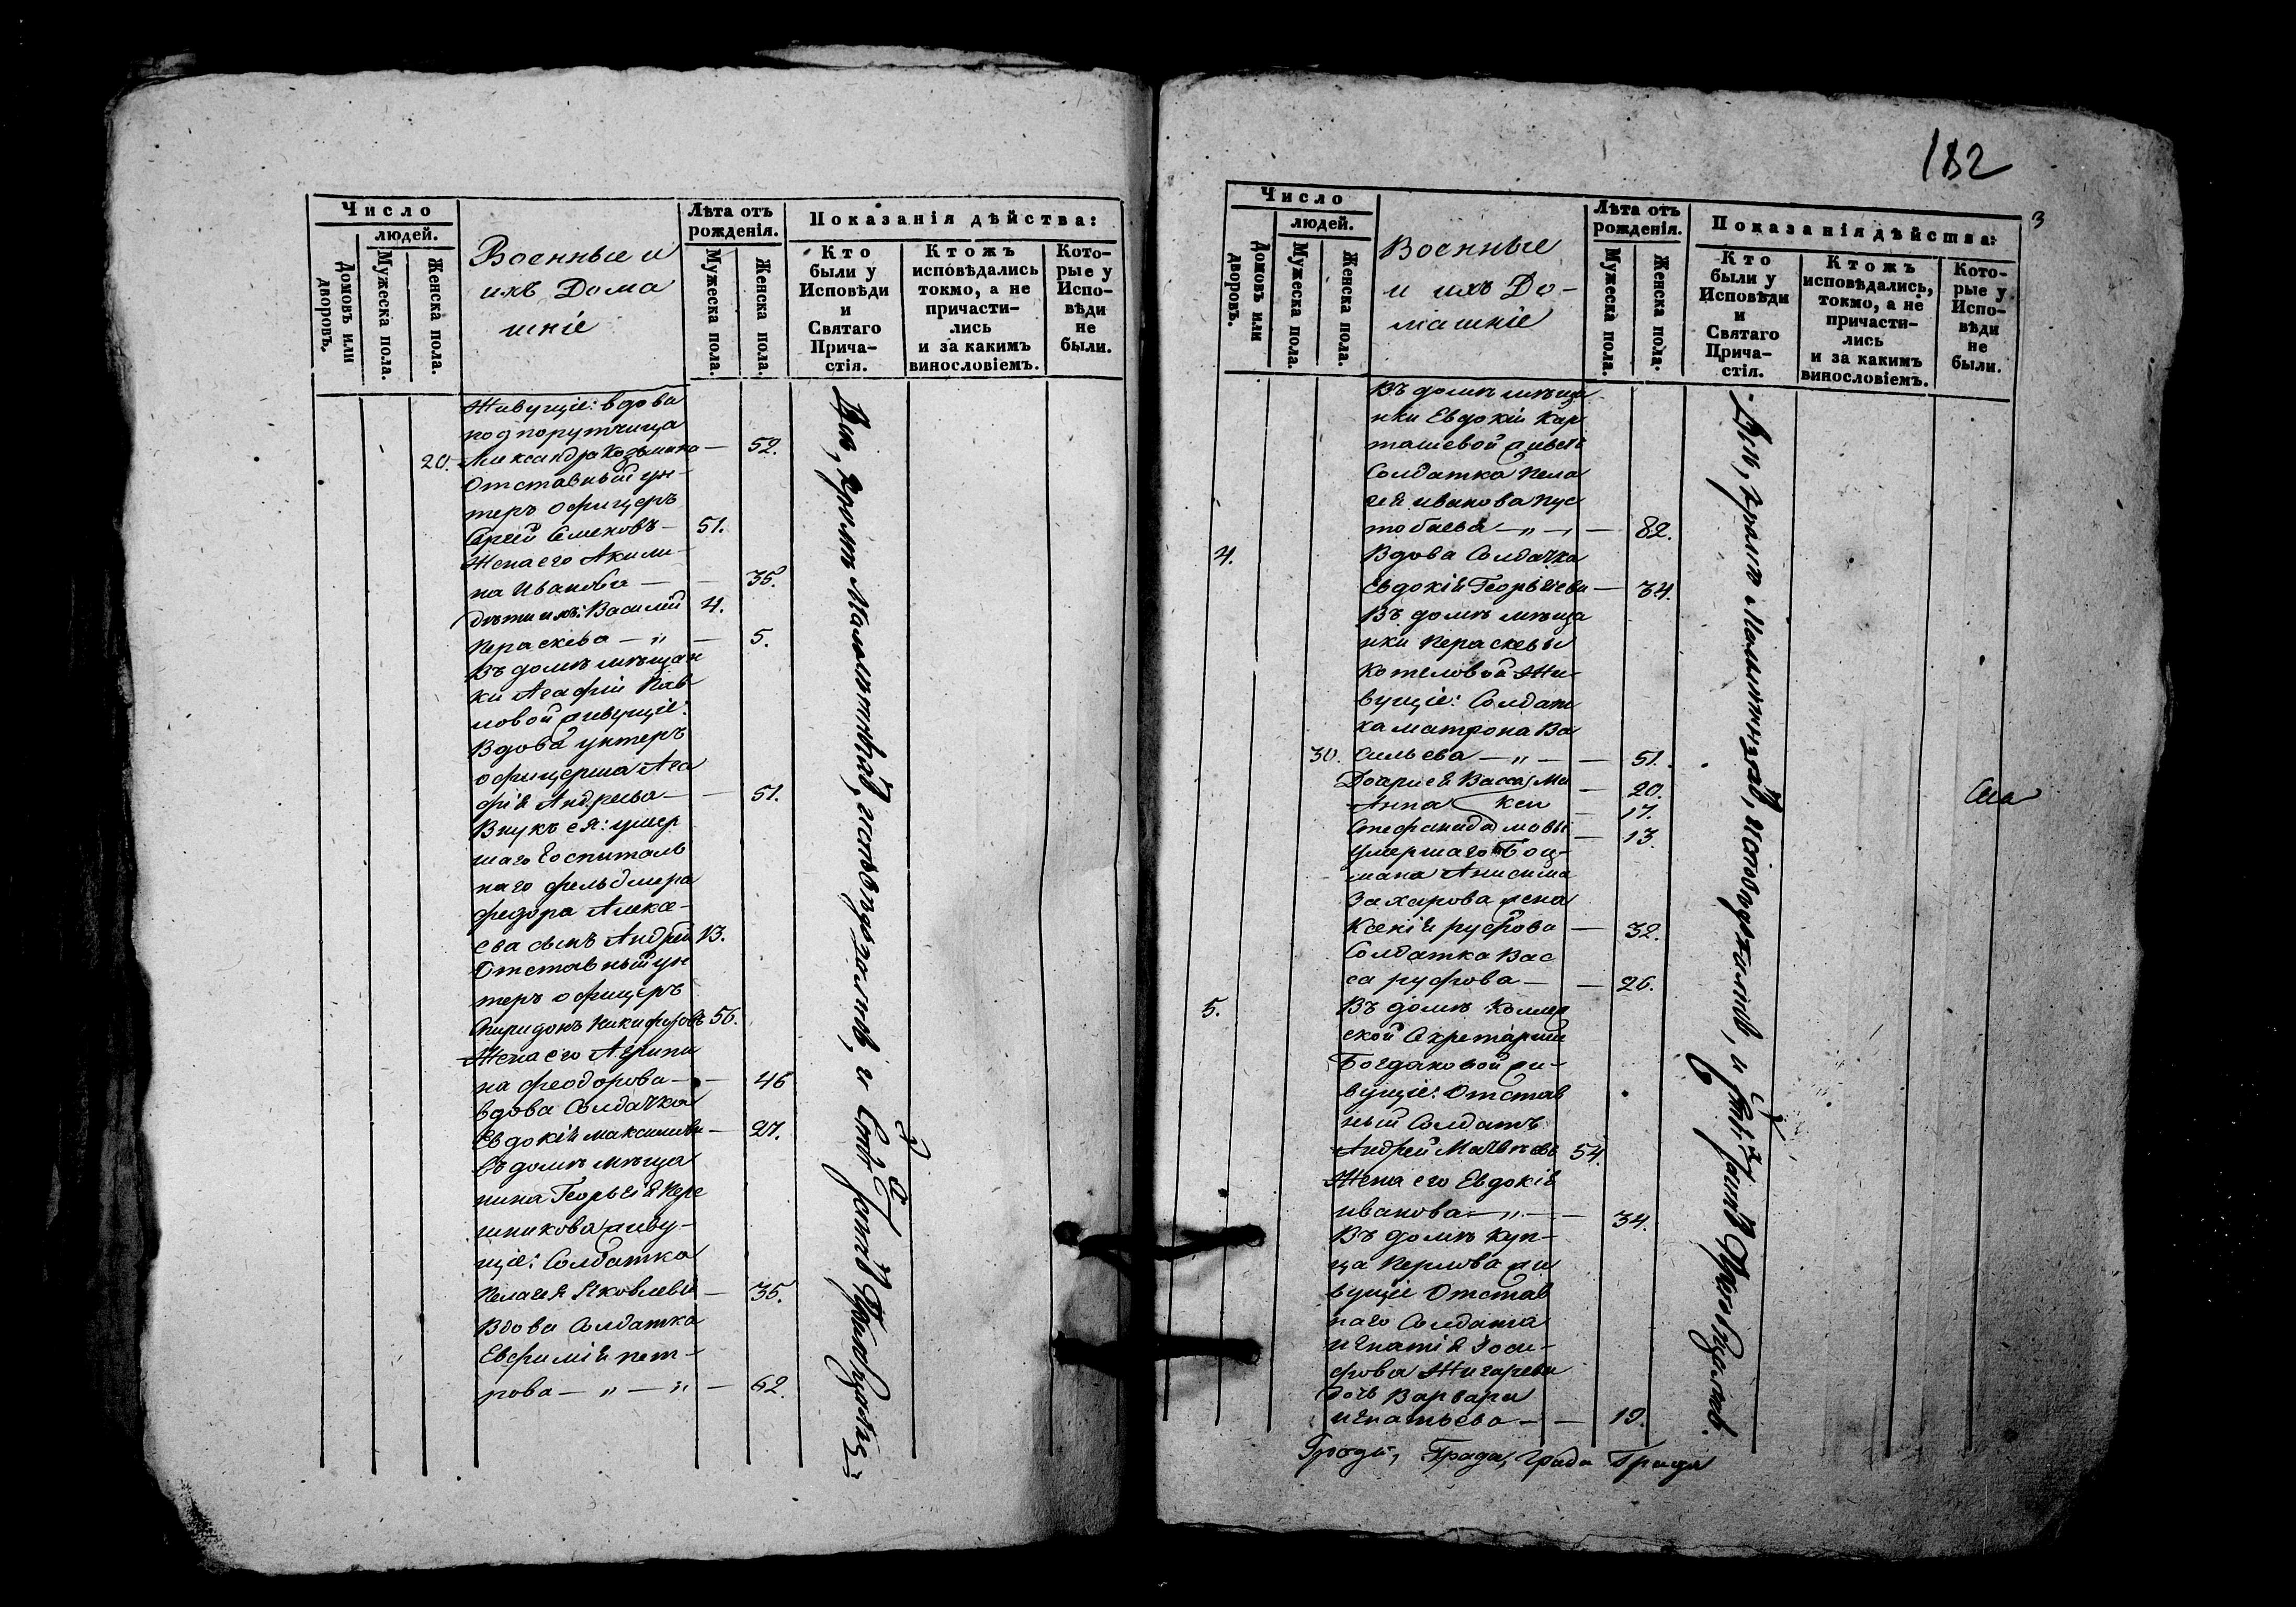 Число
людей.
Домовъ или дворовъ.
Мужеска пола.
Женска пола.
Военные и
ихъ Дома
шніе
Лѣта отъ рожденія.
Мужеска пола.
Женска пола.
Показанія дѣйства:
Кто были у Исповѣди и Святаго Прича- стія.
Ктожъ исповѣдались токмо, а не причасти- лись и за какимъ винословіемъ.
Кото- рые у Испо- вѣди не были.
Живущіе: вдова
подпорутчица
20. Александра Козьмина — 52.
Отставный ун-
теръ офицеръ
Сергей Семеновъ — 51.
Жена его Акили-
на Иванова — — 35.
дѣти ихъ: Василій 4.
Пераскева — „ — 5.
Въ домѣ мѣщан
ки Агафіи Пав
ловой живущіе:
Вдова унтеръ
офицерша Ага
фія Андреева — — 51.
Внукъ ея: умер
шаго Госпиталь
наго фельдшера
Федора Алексе-
ева сынъ Андрей 13.
Отставный ун
теръ офицеръ
Спиридонъ Никифоровъ 56.
Жена его Агрипи
на Феодорова — — 46
Вдова Солдатка
Евдокія Максимова — 27.
Въ домѣ мѣща
нина Георгія Пере
шникова живу-
щіе: Солдатка
Пелагея Яковлева — 35.
Вдова Солдатка
Евфимія Пет-
рова — „ — „ — 62.
Всѣ, кромѣ Малолѣтныхъ, исповѣдались, и
182
3
Число
людей.
Домовъ или дворовъ.
Мужеска пола.
Женска пола.
Военные
и ихъ До-
машніе
Лѣта отъ рожденія.
Мужеска пола.
Женска пола.
Показанія дѣйства:
Кто были у Исповѣди и Святаго Прича- стія.
Ктожъ исповѣдались, токмо, а не причасти- лись и за какимъ винословіемъ.
Кото- рые у Испо- вѣди не были.
Въ домѣ мѣща
нки Евдокіи Кар
ташевой живетъ
Солдатка Пела
гея Иванова Пус
тобаева — „ — — 82.
4. Вдова Солдатка
Евдокія Георгіева — 34.
Въ домѣ мѣща
нки Пераскевы
Котеловой Жи-
вущіе: Солдат
ка Матрона Ва
30. сильева — „ — — 51.
Дочери ея Васса Ма — 20.
Анна кси — 17.
Стефанида мовы — 13.
умершаго Боц-
мана Анисима
Захарова жена
Ксенія Руфова — 32.
Солдатка Вас
са Руфова — — 26.
5. Въ домѣ Коллеж
ской Секретарши
Богдановой жи-
вущіе: Отстав
ный Солдатъ
Андрей Матвѣевъ 54.
Жена его Евдокія
Иванова — „ — — 34.
Въ домѣ Куп-
ца Перлова жи
вущіе Отстав
наго Солдата
Игнатія Іоси-
фова Жигарева
дочь Варвара
Игнатьева — — 19.
Всѣ, кромѣ Малолѣтныхъ, исповѣдались, и